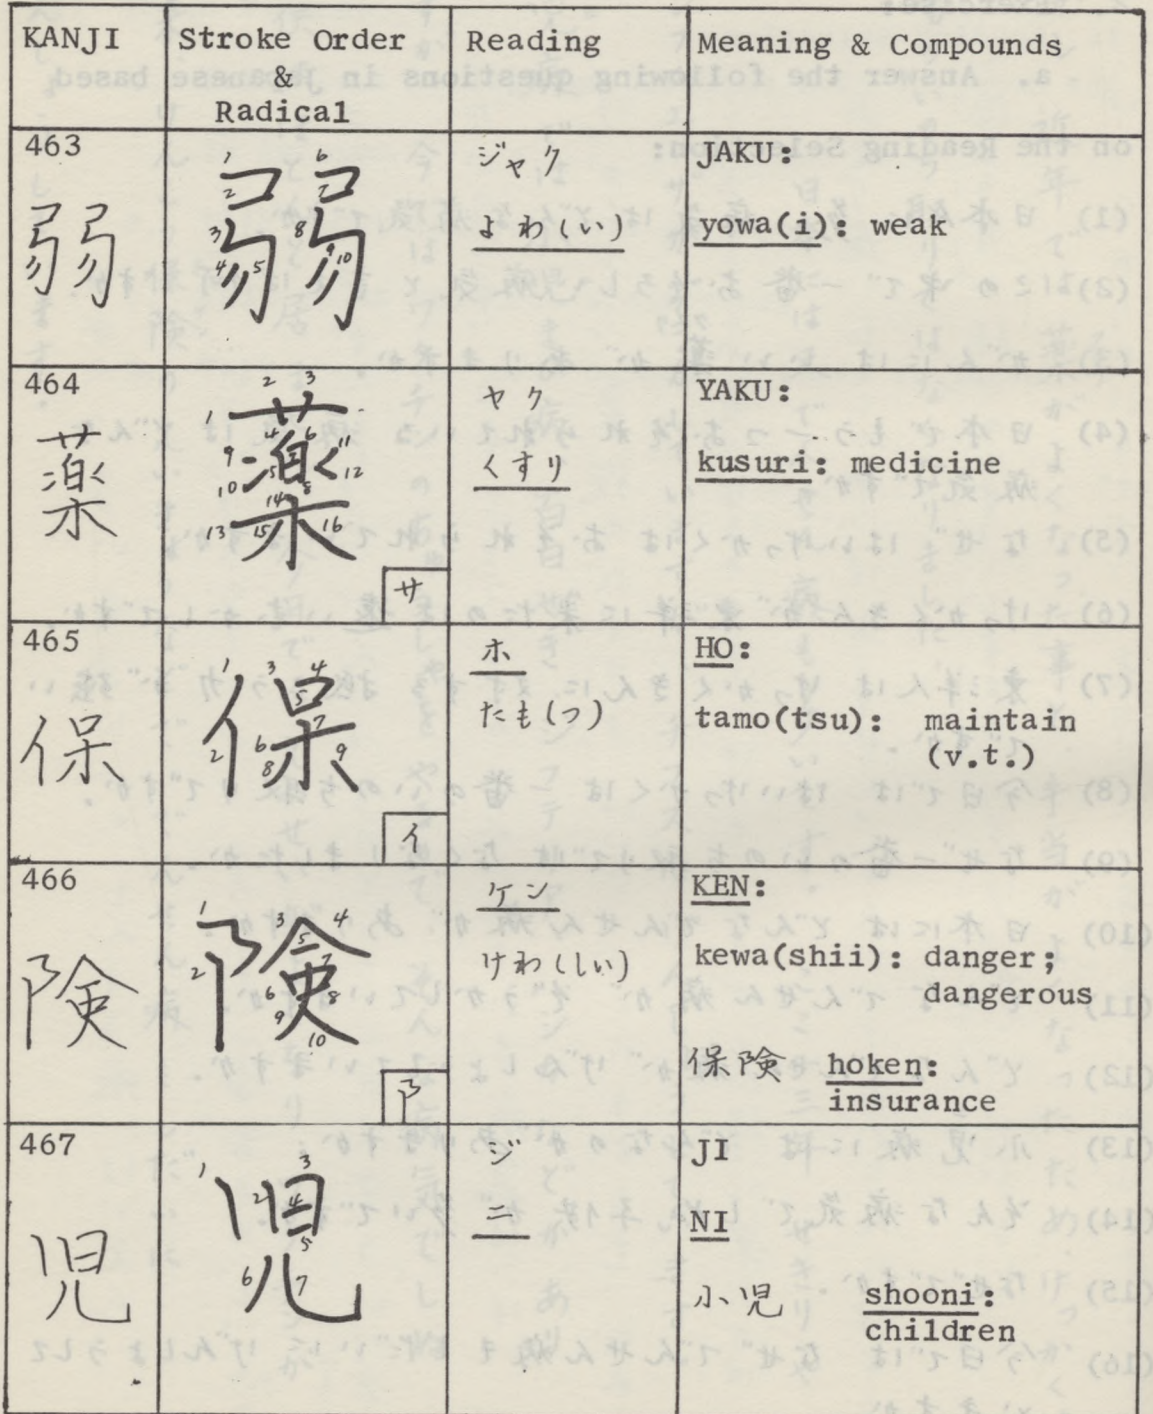 KANJI
Stroke Order
&
Radical
Reading
Meaning & Compounds
463
弱
1 2 3 4 5 6 7 8 9 10
弱
ジャク
よわ(い)
JAKU:
yowa(i): weak
464
薬
1 2 3 4 5 6 8 9 10 11 12 13 14 15 16
薬
サ
ヤク
くすり
YAKU:
kusuri: medicine
465
保
1 2 3 4 5 6 7 8 9
保
イ
ホ
たも(つ)
HO:
tamo(tsu): maintain
(v.t.)
466
険
1 2 3 4 5 6 7 8 9 10
険
阝
ケン
けわ(しい)
KEN:
kewa(shii): danger;
dangerous
保険 hoken:
insurance
467
児
1 2 3 4 5 6 7
児
ジ
ニ
JI
NI
小児 shooni:
children